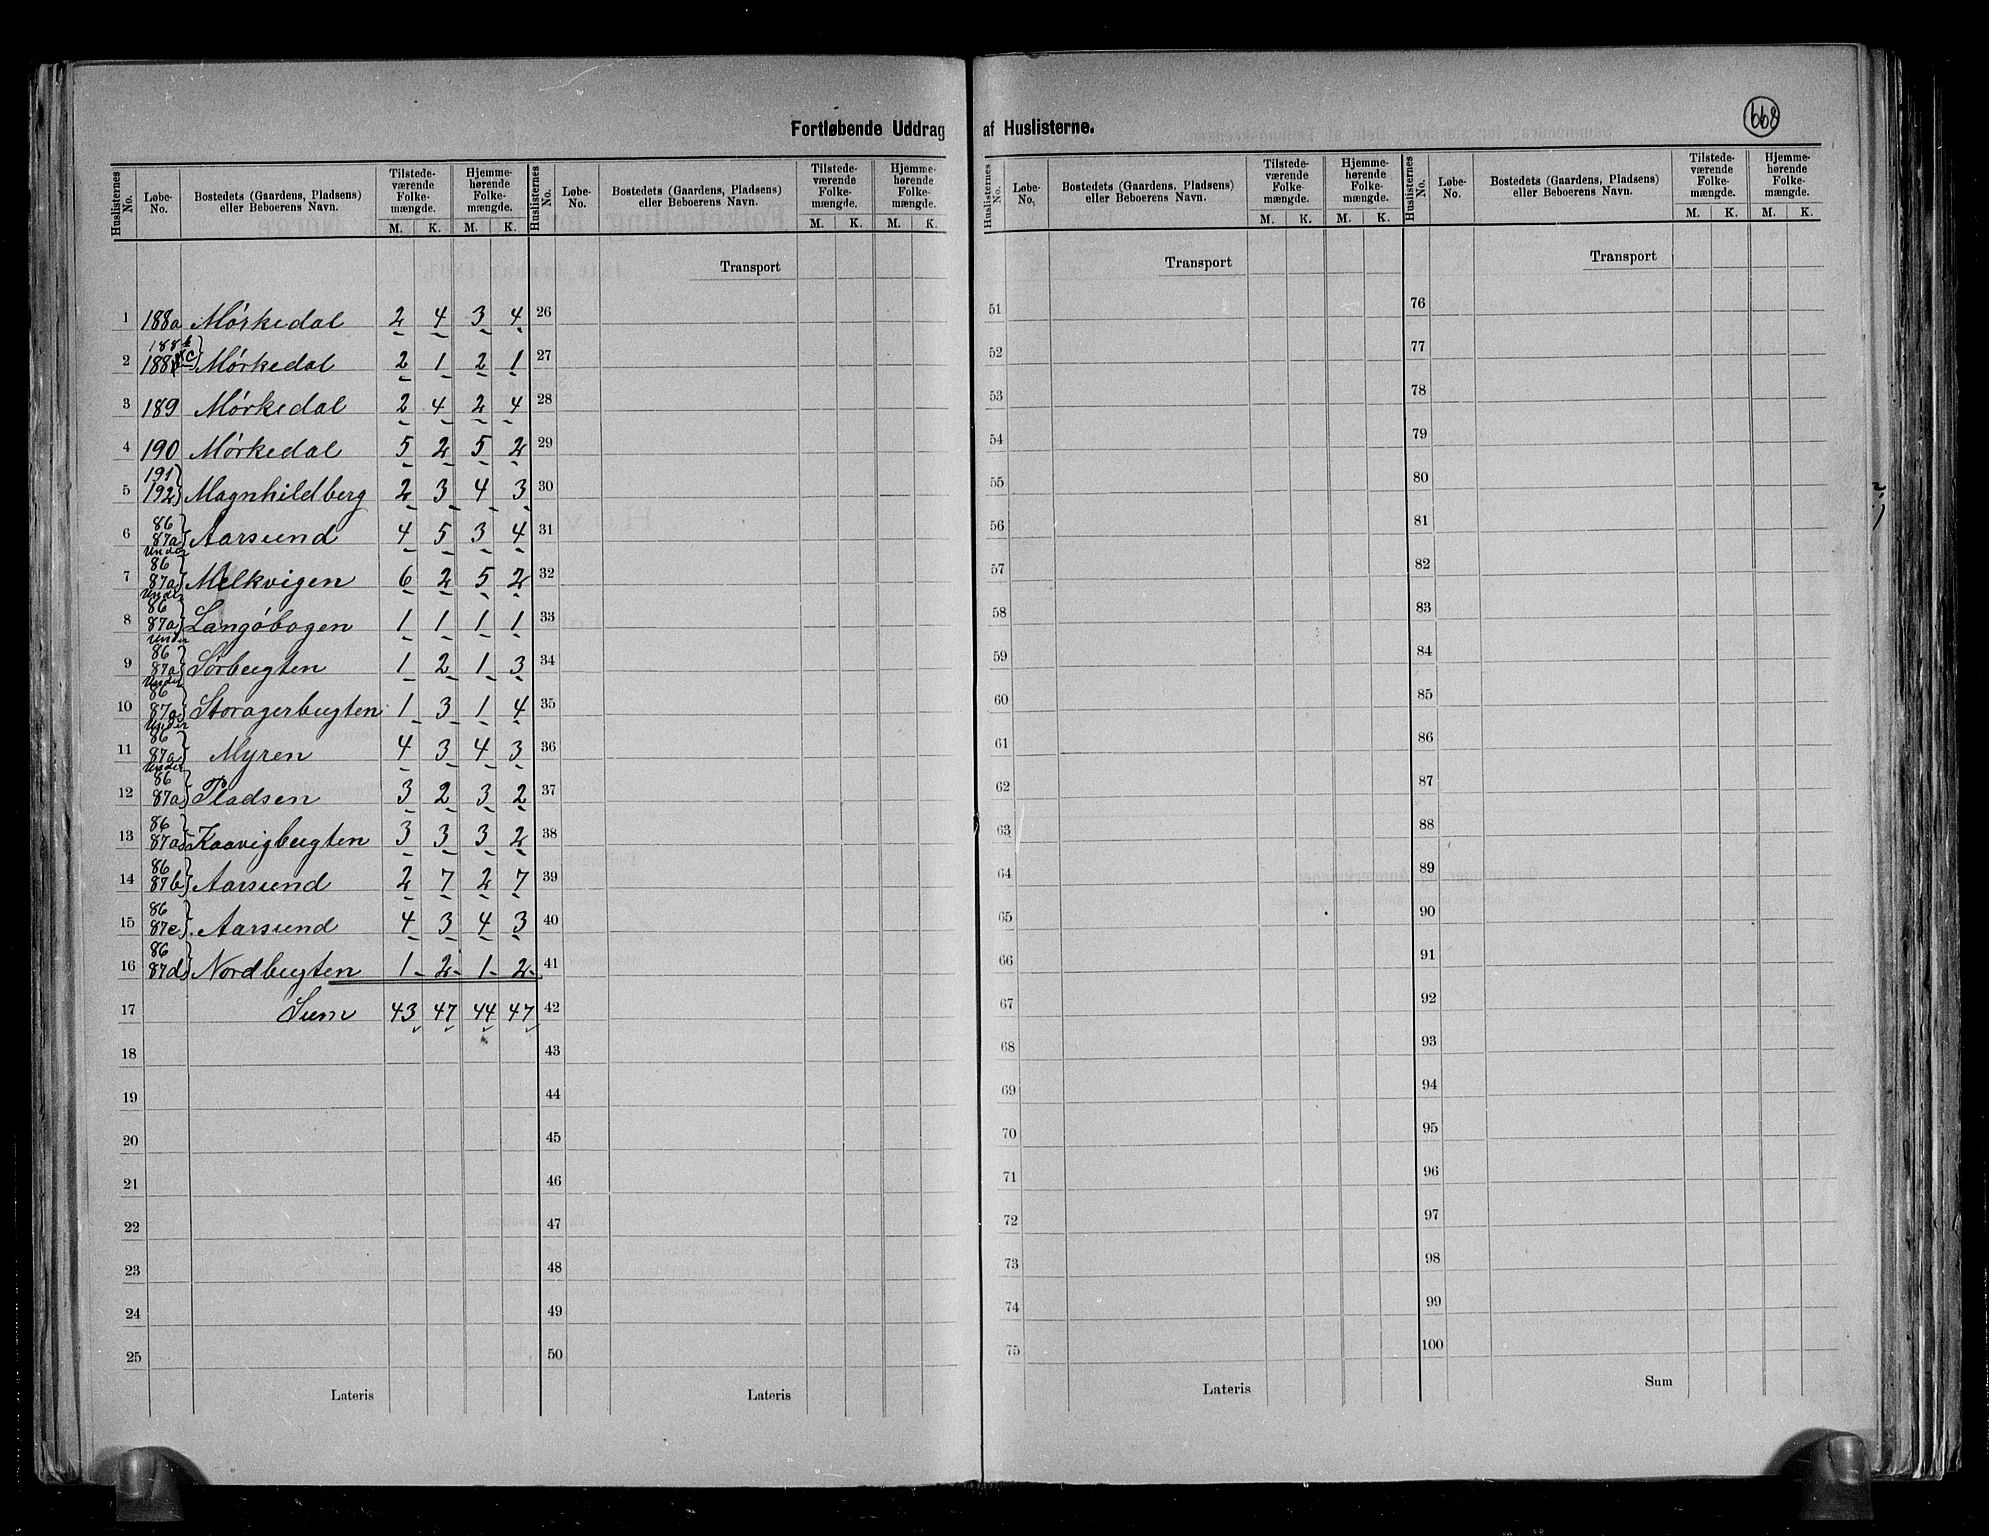 Fortløbende Uddrag af Huslisterne.
668
Huslisternes No. Løbe-No. Bostedets (Gaardens, Pladsens) eller Beboerens Navn. Tilstede-værende Folke-mængde. M. K. Hjemme-hørende Folke-mængde. M. K.
Huslisternes No. Løbe-No. Bostedets (Gaardens, Pladsens) eller Beboerens Navn. Tilstede-værende Folke-mængde. M. K. Hjemme-hørende Folke-mængde. M. K.
Huslisternes No. Løbe-No, Bostedets (Gaardens, Pladsens) eller Beboerens Navn. Tilstede-værende Folke-mængde. M. K. Hjemme-hørende Folke-mængde. M. K.
Huslisternes No. Løbe-No. Bostedets (Gaardens, Pladsens) eller Beboerens Navn. Tilstede-værende Folke-mængde. M. K. Hjemme-hørende Folke-mængde. M. K.
1 188a Mørkedal 2 4 3 4
2 Mørkedal 2 1 2 1
3 189 Mørkedal 2 4 2 4
4 190 Mørkedal 5 2 5 2
191
5 192 Magnhildberg 2 3 4 3
86
6 87a Aarsund 4 5 3 4
Under
86
7 87a Melkvigen 6 2 5 2
Under
86
8 87a Langøbogen 1 1 1 1
Under
86
9 87a Sørbugten 1 2 1 3
Under
86
10 87a Storagerbugten 1 3 1 4
Under
86
11 87a Myren 4 3 4 3
Under
86
12 87a Pladsen 3 2 3 2
86
13 87a Kaavigbugten 3 3 3 2
86
14 87b Aarsund 2 7 2 7
86
15 87c Aarsund 4 3 4 3
86
16 87d Nordbugten 1 2 1 2
17 Sum 43 47 44 47
18
19
20
21
22
23
24
25
Lateris
Transport
26
27
28
29
30
31
32
33
34
35
36
37
38
39
40
41
42
43
44
45
46
47
48
49
50
Lateris
Transport
51
52
53
54
55
56
57
58
59
60
61
62
63
64
65
66
67
68
69
70
71
72
73
74
75
Lateris
Transport
76
77
78
79
80
81
82
83
84
85
86
87
88
89
90
91
92
93
94
95
96
97
98
99
100
Sum